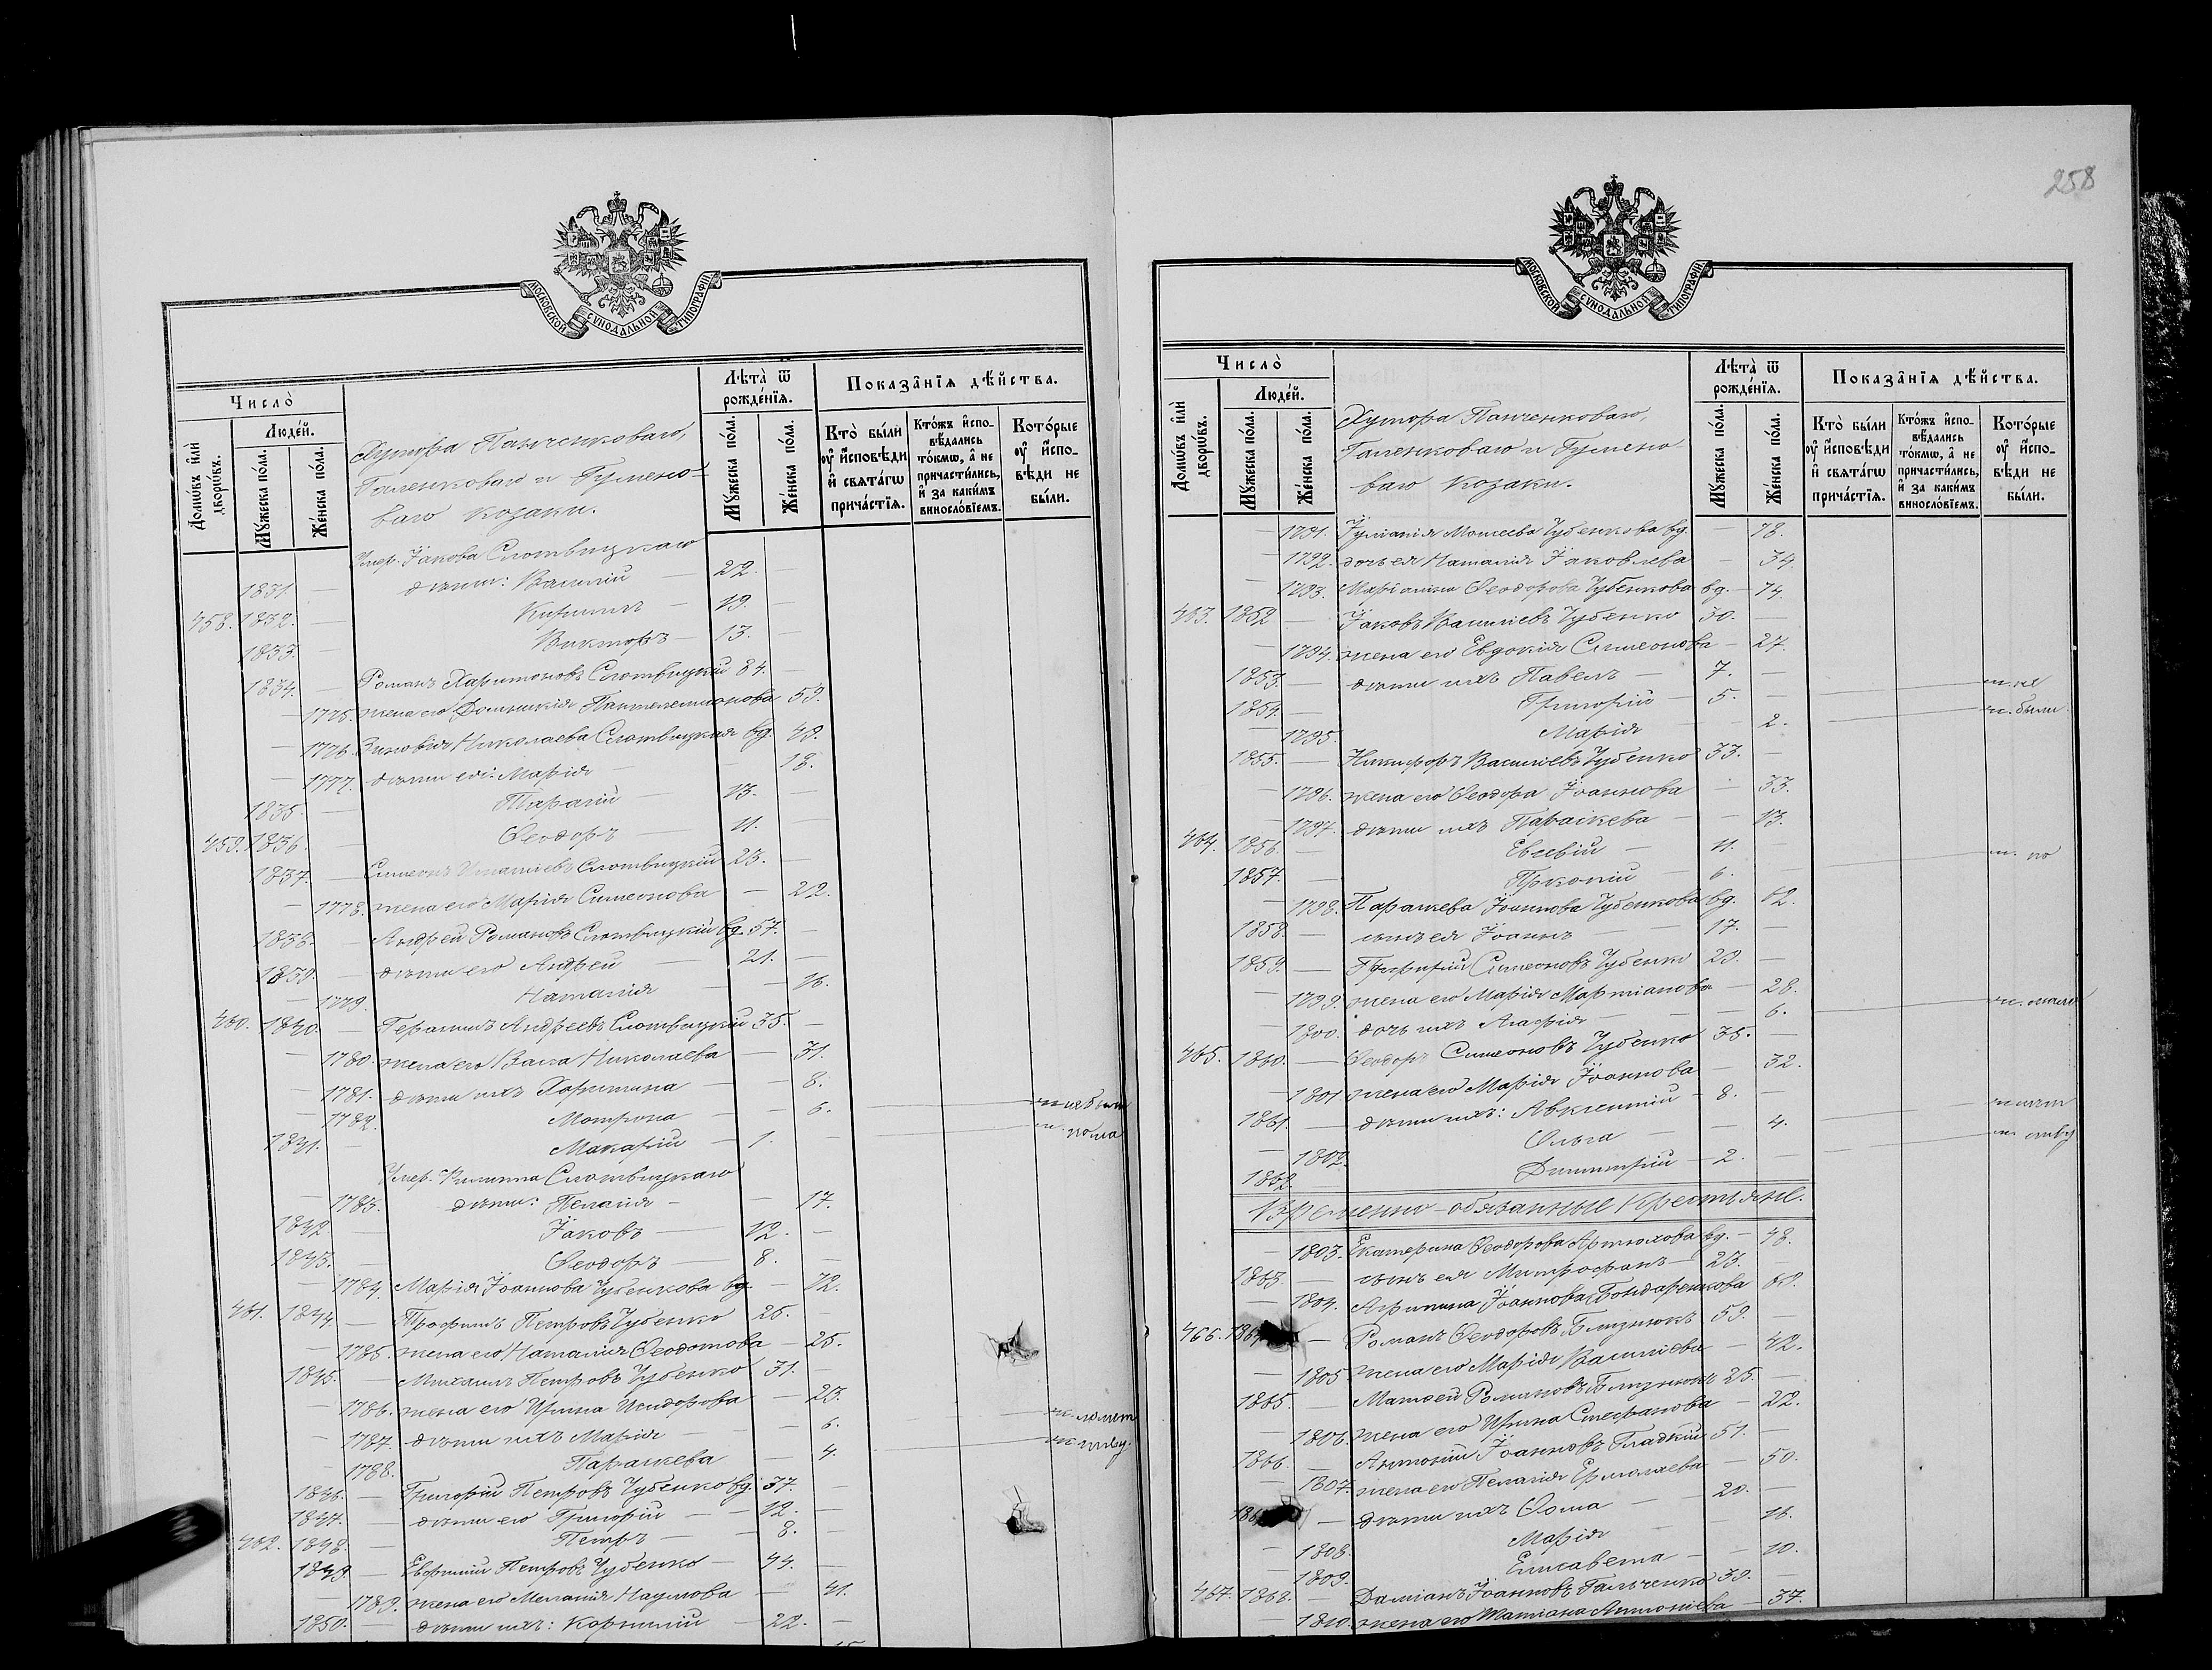 258
МОСКОВСКОЙ СѴНОДАЛЬНОЙ ТИПОГРАФІИ
Число̀
Домѡ́въ и҆лѝ дворѡ́въ.
Люде́й.
Мꙋ́жеска по́ла.
Же́нска по́ла.
Хутора Панченковаго,
Галенковаго и Гумено-
ваго козаки.
Лѣта̀ ѿ рожде́нїѧ.
Мꙋ́жеска по́ла.
Же́нска по́ла.
Показа̑нїѧ дѣ́йства.
Кто̀ бы́ли оу҆ и҆́сповѣди и҆ свѧта́гѡ прича́стїѧ.
Кто́жъ и҆спо-вѣ́дались то́кмѡ, а҆ не причасти́лись, и҆ за каки́мъ винослѡ́вїемъ.
Кото́рые оу҆ и҆́спо-вѣди не бы́ли.
Умер. Іакова Слотвицкаго
1831. — дѣти: Василій — 22. —
458. 1832. — Кириллъ — 19. —
1833. — Викторъ — 13. —
1834. — Романъ Харитоновъ Слотвицкій 84. —
— 1775. жена его Домникія Пантелеимонова 59.
— 1776. Зиновія Николаева Слотвицкая вд. 49.
— 1777. дѣти ея: Марія — — 18.
1835. — Тарасій — 13. —
459. 1836. — Ѳеодоръ — 11. —
1837. — Симеонъ Игнатіевъ Слотвицкій 23. —
— 1778. жена его Марія Симеонова — 22.
1838. — Андрей Романовъ Слотвицкій вд. 57. —
1839. — дѣти его Андрей — 21. —
— 1779. Наталія — — 16.
460. 1840. — Герасимъ Андреевъ Слотвицкій 35. —
— 1780. жена его Васса Николаева — 31.
— 1781. дѣти ихъ Харитина — — 8.
— 1782. Матрона — — 6.
1841. — Макарій — 1. —
Умер. Филиппа Слотвицкаго
— 1783. дѣти: Пелагія — — 17.
1842 — Іаковъ — 12. —
1843. — Ѳеодоръ — 8. —
— 1784. Марія Іоаннова Чубенкова вд. — 72.
461. 1844. — Трофимъ Петровъ Чубенко 26. —
— 1785. жена его Наталія Ѳеодотова — 25.
1845. — Михаилъ Петровъ Чубенко 31. —
— 1786. жена его Ирина Исидорова — 23.
— 1787. дѣти ихъ Марія — — 6.
— 1788. Параскева — 4.
1846. — Григорій Петровъ Чубенко вд. 37. —
1847. — дѣти его Григорій — 12. —
462. 1848. — Петръ — 8. —
1849. — Евфимій Петровъ Чубенко — 44. —
— 1789. жена его Меланія Наумова — 41.
1850. — дѣти ихъ: Корнилій — 22. —
МОСКОВСКОЙ СѴНОДАЛЬНОЙ ТИПОГРАФІИ
Число̀
Домѡ́въ и҆лѝ дворѡ́въ.
Люде́й.
Мꙋ́жеска по́ла.
Же́нска по́ла.
Хутора Панченковаго,
Галенковаго и Гумено
ваго козаки.
Лѣта̀ ѿ рожде́нїѧ.
Мꙋ́жеска по́ла.
Же́нска по́ла.
Показа̑нїѧ дѣ́йства.
Кто̀ бы́ли оу҆ и҆́сповѣди и҆ свѧта́гѡ прича́стїѧ.
Кто́жъ и҆спо-вѣ́дались то́кмѡ, а҆ не причасти́лись, и҆ за каки́мъ винослѡ́вїемъ.
Кото́рые оу҆ и҆́спо-вѣди не бы́ли.
— 1791. Іуліанія Моисеева Чубенкова вд. — 78.
— 1792. дочь ея Наталія Іаковлева — 34.
— 1793. Маріанна Ѳеодорова Чубенкова вд. — 74.
463. 1852 — Іаковъ Василіевъ Чубенко 30. —
— 1794. жена его Евдокія Симеонова — 27.
1853. — дѣти ихъ Павелъ — 7. —
1854. — Григорій — 5. —
— 1795. Марія — — 2.
1855. — Никифоръ Василіевъ Чубенко 33. —
— 1796. жена его Ѳеодора Іоаннова — 33.
— 1797. дѣти ихъ Параскева — — 13.
464. 1856. — Евсевій — 11. —
1857. — Прокопій — 6. —
— 1798. Параскева Іоаннова Чубенкова вд. 62.
1858. — сынъ ея Іоаннъ — 17. —
1859. — Григорій Симеоновъ Чубенко 29. —
— 1799. жена его Марія Мартіанова — 28.
— 1800. дочь ихъ Агафія — — 6.
465. 1860. — Ѳеодоръ Симеоновъ Чубенко 35. —
— 1801 жена его Марія Іоаннова — 32.
1861. — дѣти ихъ: Авксентій — 8. —
— 1802. Ольга — — 4.
1862. Димитрій — 2. —
Временно-обязанные Крестьяне.
— 1803. Екатерина Ѳеодорова Артюхова вд. — 48.
1863. — сынъ ея Митрофанъ — 23. —
— 1804. Агрипина Іоаннова Бондаренкова
466. — Романъ Ѳеодоровъ Близнюкъ 59. —
— 1805 жена его Марія Василіева — 42.
1865. — Матѳей Романовъ Близнюкъ 25. —
— 1806. жена его Ирина Стефанова — 22.
1866. — Антоній Іоанновъ Гладкій 51. —
— 1807. жена его Пелагія Ермолаева — 50.
— дѣти ихъ Ѳома — 20. —
— 1808. Марія — 16.
— 1809. Елисавета — — 10.
467. 1868. — Даміанъ Іоанновъ Гальченко 39. —
— 1810. жена его Татіана Антоніева — 37.